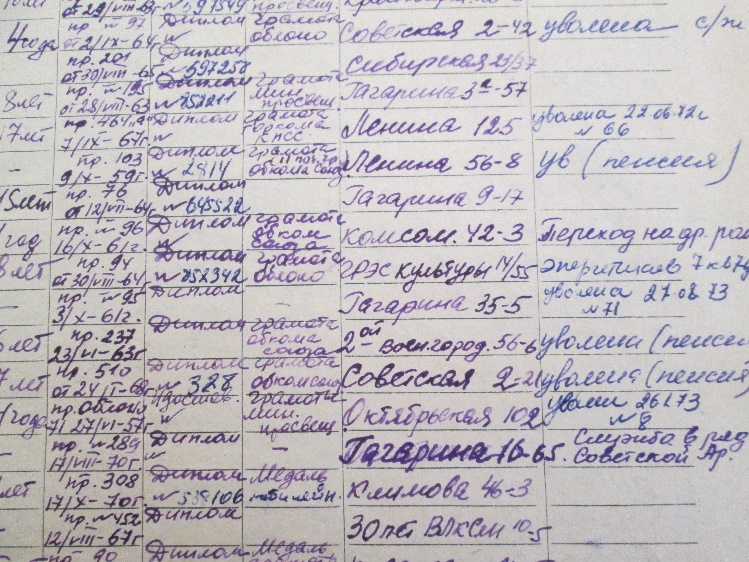 от 29/VIII-69г № 597549 просвещ.
4 года пр. № 97 Диплом грамота Советская 2-42 уволена с/ж
от 2/IX-64г № облоно
пр. 201 Диплом Сибирская 23/37
от 30/VIII-65 № 597258 грамота
8 лет пр. № 195 Диплом мин. Гагарина 3а-57
от 28/VIII-63 № 752211 просвещ.
17 лет пр. 464 Диплом грамота Ленина 125 уволена 22.06.72г
7/IX-67г. № горкома КПСС № 66
– пр. 103 Диплом грамота Ленина 56-8 ув (пенсия)
9/X-59г. № 2814 обкома союз.
15 лет пр. 76 Диплом Гагарина 9-17
от 12/VIII-64г № 645522
1 год пр. № 96 Диплом грамота Комсом. 42-3 Переход на др. раб
16/X-61г. № обком союза
8 лет пр. 94 Диплом грамота ГРЭС Культуры 14/55
от 30/VIII-64г № 752342 облоно
– пр. № 95 Диплом – Гагарина 35-5 уволена 27.08.73
3/X-61г. № 71
лет пр. 237 Диплом грамота 2-ой Воен.город. 56-6 уволена (пенсия
23/VI-63г обкома союза
7 лет пр. 510 Диплом грамота Советская 2-21 уволена (пенсия
от 24 № 328 обкомсоюз
года пр. облоно грамота Октябрьская 102 увол 26.1.73
27/VI-57г № мин. просвещ. № 8
пр. № 289 Диплом – Гагарина 16-65. Служба в ряд
17/VIII-70г Советской Ар.
лет пр. 308 Диплом Медаль Климова 46-3
17/X-70г. № 588106 юбилейн.
пр. № 452 Диплом 30 лет ВЛКСМ 10-5
12/VIII-67г
пр. 90 Диплом Медаль